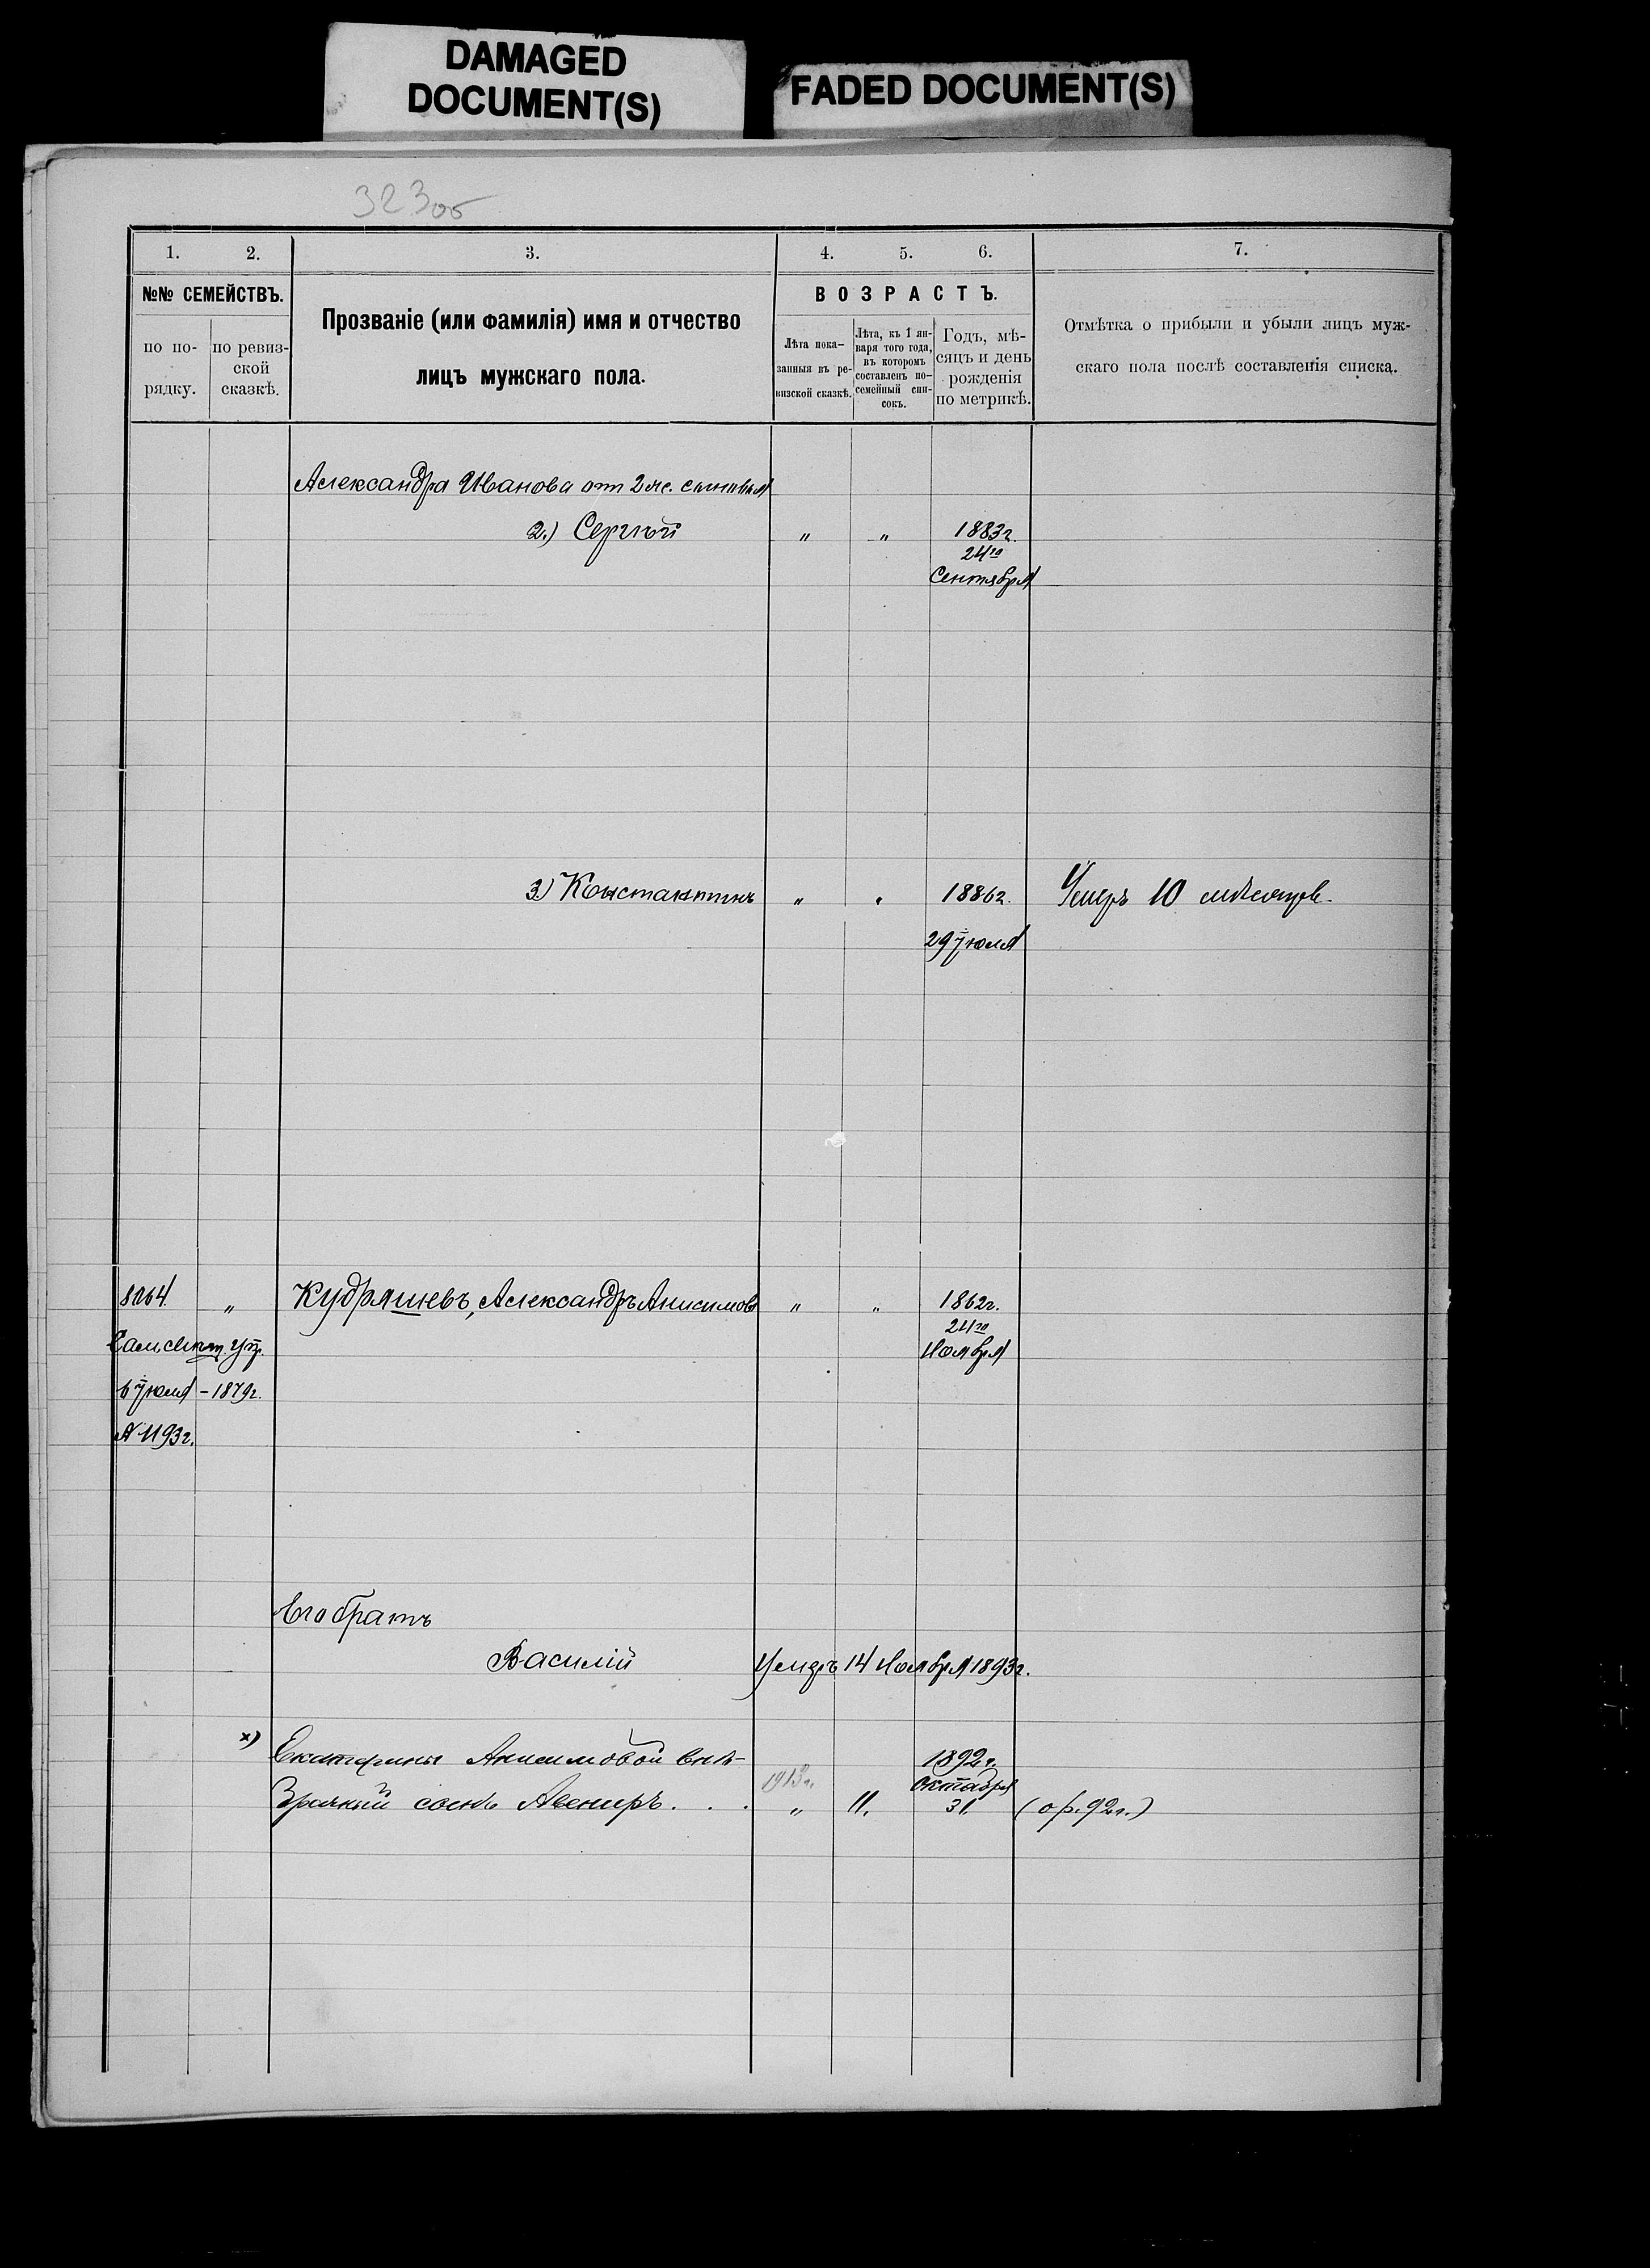 DAMAGED
DOCUMENT(S)
FADED DOCUMENT(S)
323об
1. 2. 3. 4. 5. 6. 7.
№№ СЕМЕЙСТВЪ.
по по-
рядку.
по ревиз-
ской
сказкѣ.
Прозваніе (или фамилія) имя и отчество
лицъ мужскаго пола.
ВОЗРАСТЪ.
Лѣта пока-
занныя въ ре-
визской сказкѣ.
Лѣта, къ 1 ян-
варя того года,
въ которомъ
составленъ по-
семейный спи-
сокъ.
Годъ, мѣ-
сяцъ и день
рожденія
по метрикѣ.
Отмѣтка о прибыли и убыли лицъ муж-
скаго пола послѣ составленія списка.
Александра Иванова от 2 ж. сыновья
2.) Сергѣй " " 1883г.
24го
Сентября
3) Константинъ " " 1886г. Умеръ 10 мѣсяцев.
29 Іюля
8064. " Кудряшевъ, Александръ Анисимовъ " " 1862г.
24го
Ноября
6 Іюля - 1879г.
№ 1193г.
Его братъ
Василій Умеръ 14 Ноября 1893г.
х) Екатерины Анисимовой внѣ- 1892г.
1913г. Октября
Брачный сынъ Авениръ . . . " 11. 31. (о р. 92г.)